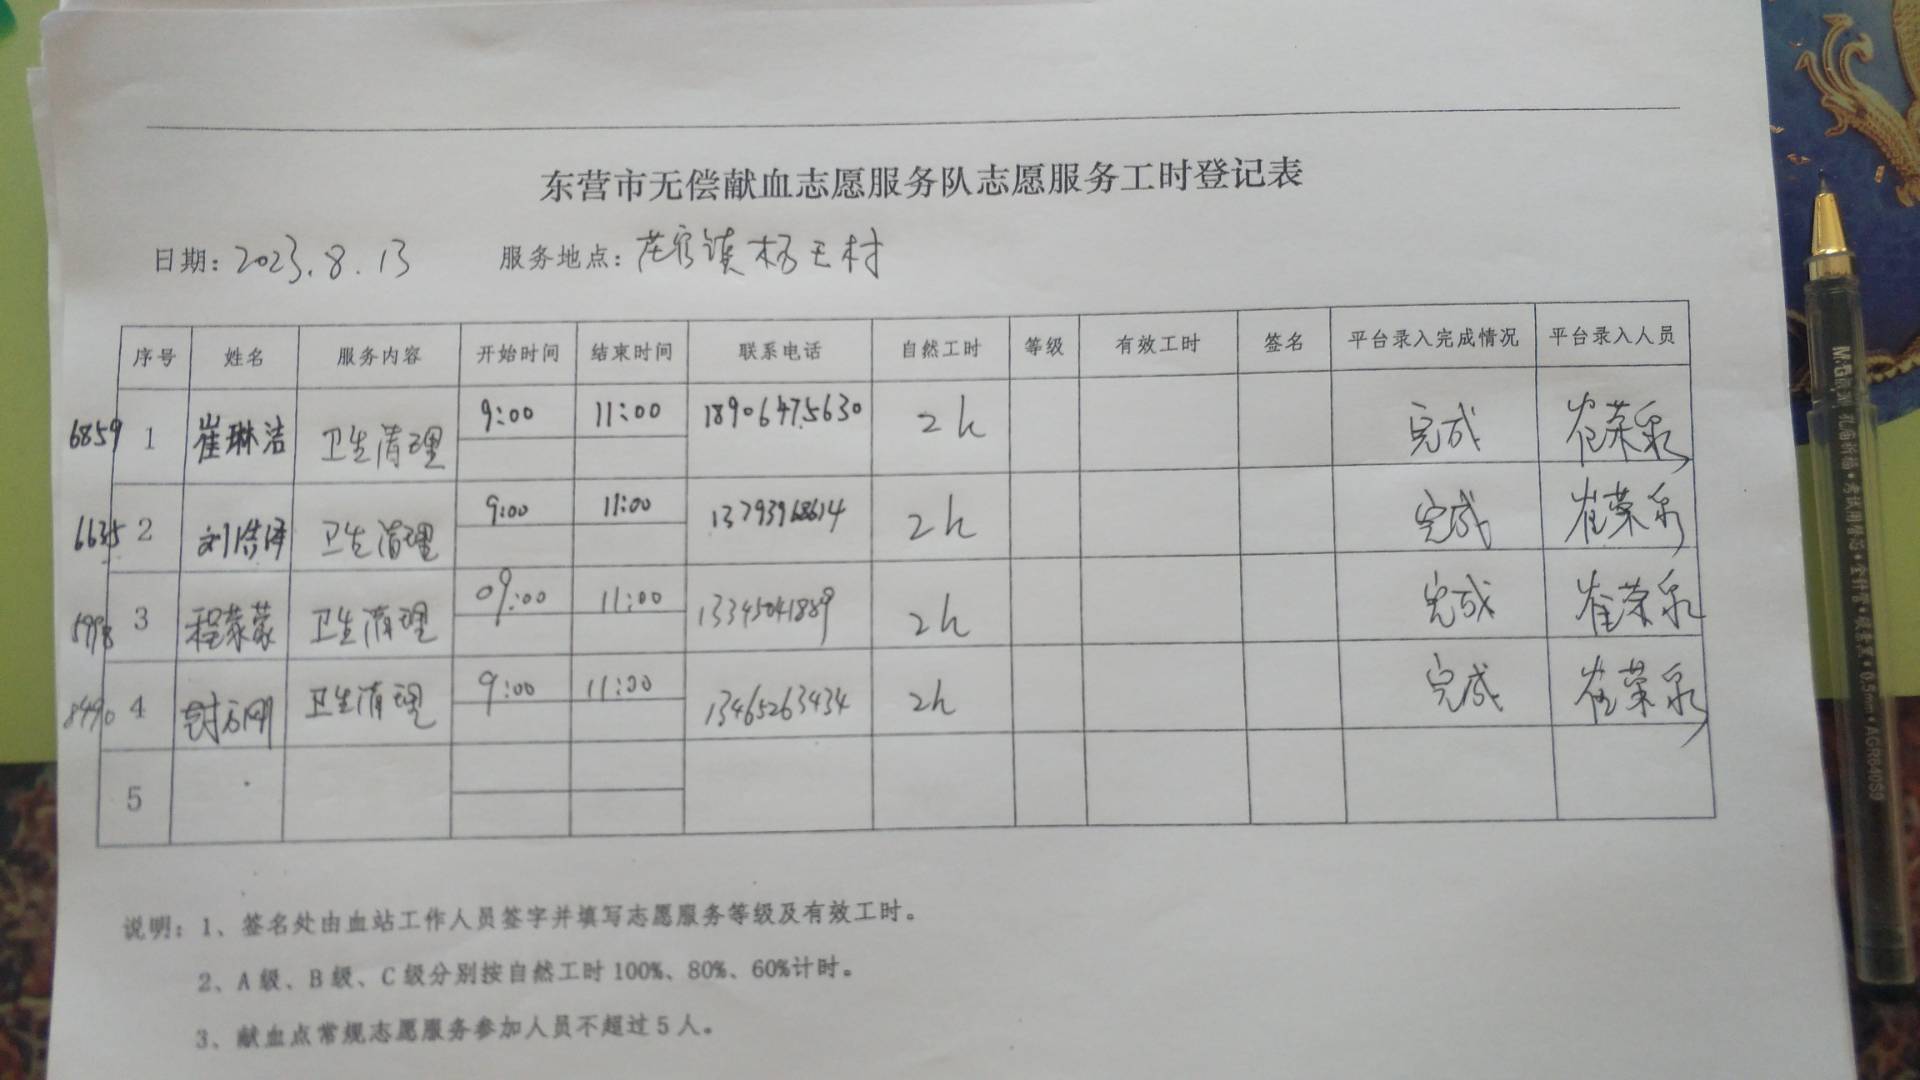 东营市无偿献血志愿服务队志愿服务工时登记表
日期: 2023.8.13 服务地点: 庄镇杨王村
序号 姓名 服务内容 开始时间 结束时间 联系电话 自然工时 等级 有效工时 签名 平台录入完成情况 平台录入人员
6859 1 崔琳洁 卫生清理 9:00 11:00 18906475630 2h 完成 崔荣泉
6635 2 刘浩泽 卫生清理 9:00 11:00 13793968614 2h 完成 崔荣泉
3 程蒙蒙 卫生清理 09:00 11:00 13345041889 2h 完成 崔荣泉
8490 4 封方刚 卫生清理 9:00 11:00 13465263434 2h 完成 崔荣泉
5
说明: 1、签名处由血站工作人员签字并填写志愿服务等级及有效工时。
2、A级、B级、C级分别按自然工时100%、80%、60%计时。
3、献血点常规志愿服务参加人员不超过5人。
M&G 孔庙祈福•考试用
•0.5mm•AGR640S9